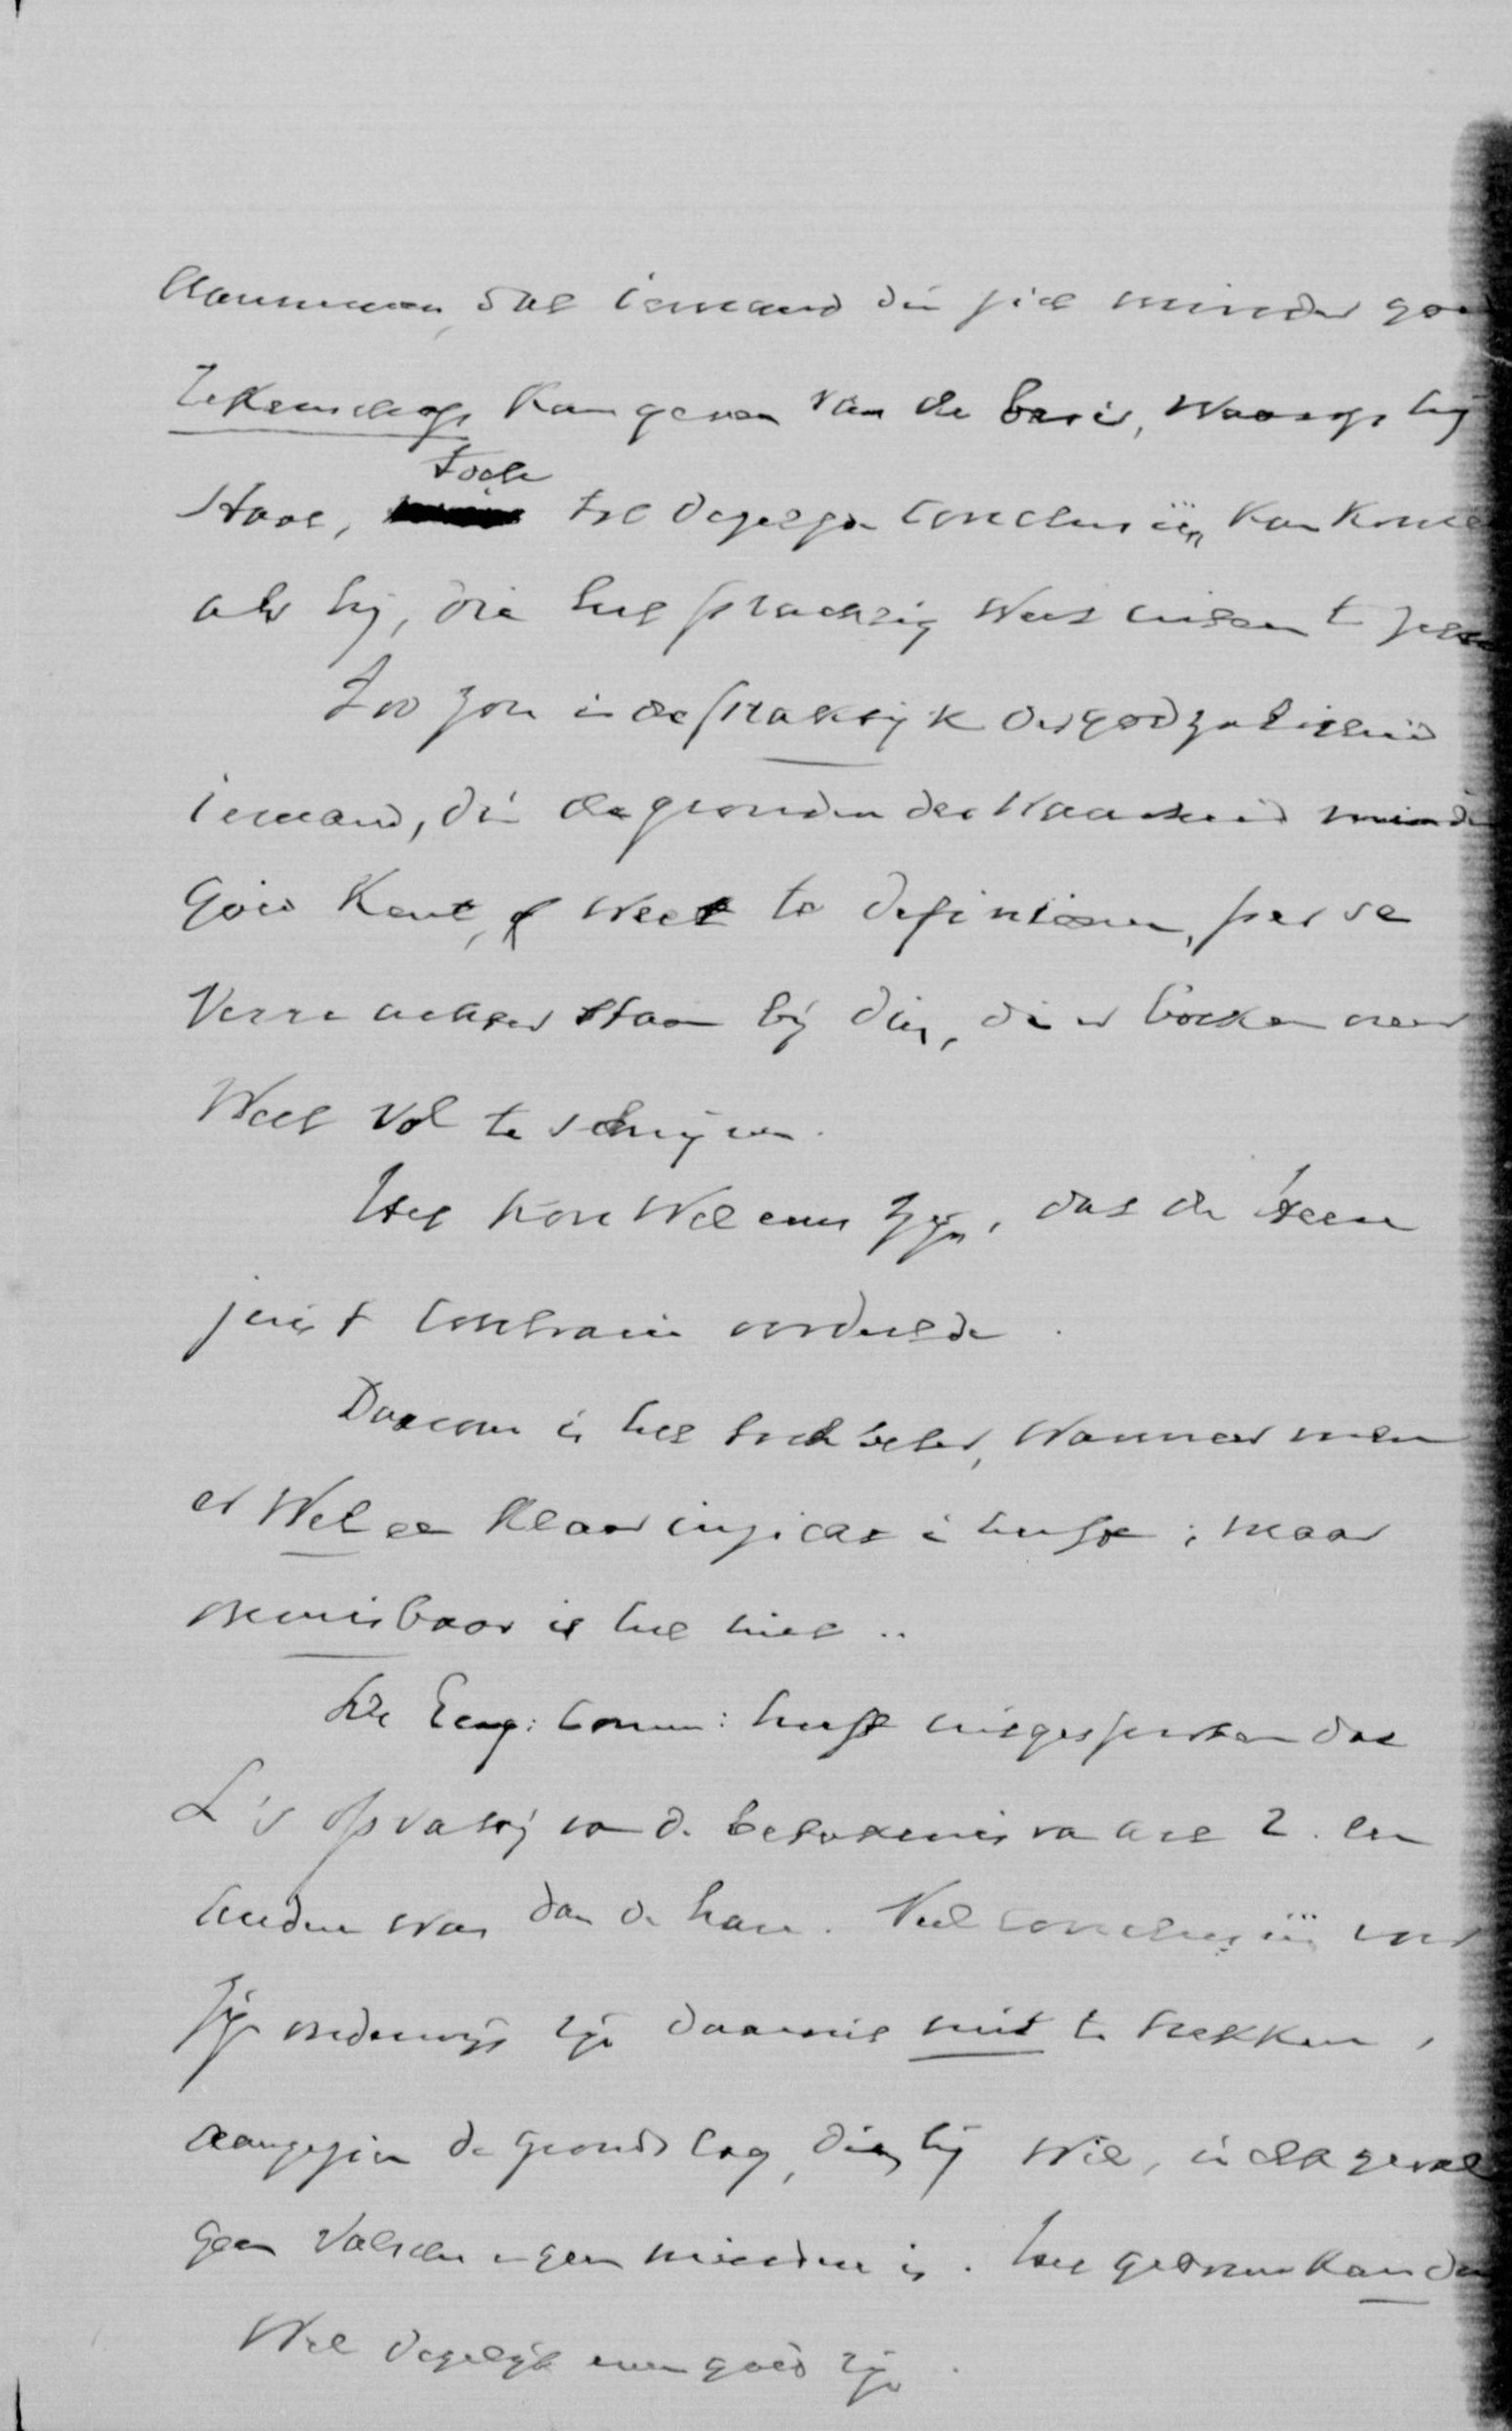 aannemen, dat iemand die zich minder goed
rekenschap kan geven van de basis, waarop hij
staat, toch tot degelijke conclusiën kan komen
als hij, die het prachtig weet uiteen te zetten
Zoo zou in de praktijk der godzaligheid
iemand, die de gronden der waarheid minder
goed kent, of weet te definieeren, per se
verre achter staan bij dien, die er boeken over
weet vol te schrijven.
Het kon wel eens zijn, dat de Heere
juist contrarie oordeelde.
Daarom is het toch beter, wanneer men
er wel een klaar inzicht in heeft; maar
onmisbaar is het niet..
De Comm: heeft uitgesproken dat
L's opvatting van de beteekenis van art 2. een
andere was dan de hare. Veel conclusiën voor
zijn onderwijs zijn daaruit niet te trekken,
aangezien de grondslag, dien hij wil, in elk geval
geen valsche en geen mindere is. Het gebouw kan dus
wel degelijk even goed zijn.